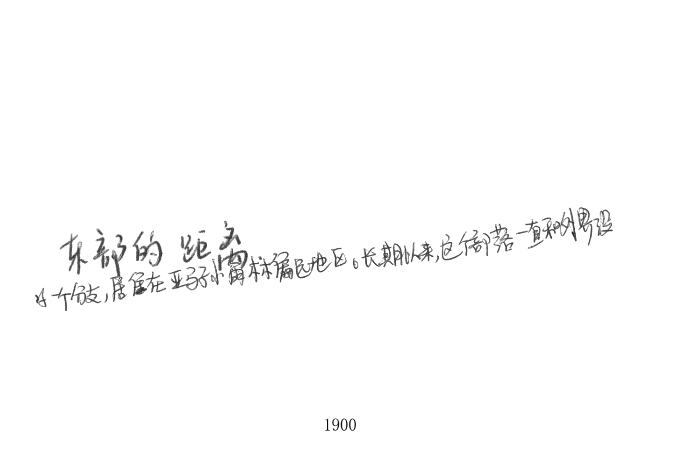 东部的 距离
个分支,居住在亚马孙雨林偏民地区。长期以来,这个部落一直和外界没
1900